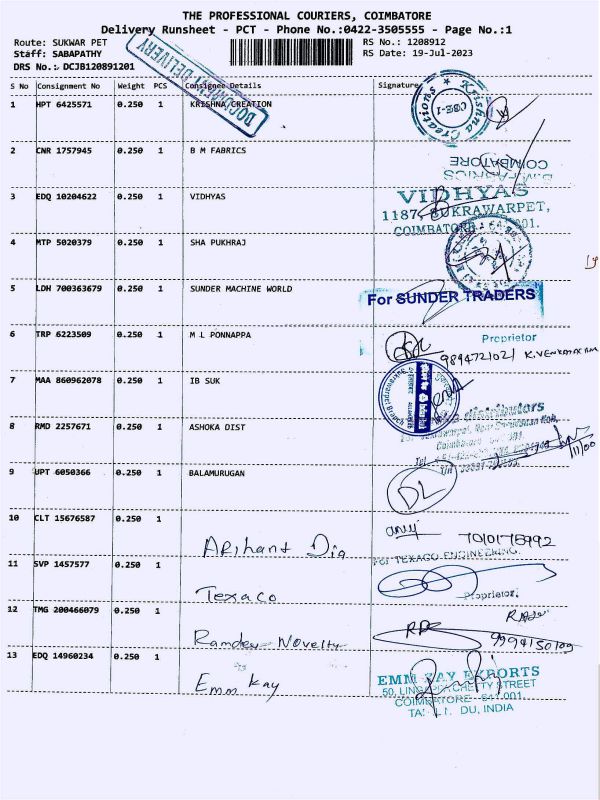 THE PROFESSIONAL COURIERS, COIMBATORE
Delivery Runsheet - PCT - Phone No.:0422-3505555 - Page No.:1
Route: SUKWAR PET RS No.: 1208912
Staff: SABAPATHY RS Date: 19-Jul-2023
DRS No.: DCJB120891201
DOCUMENT DELIVERY
S No Consignment No Weight PCS Consignee Details Signature
1 HPT 6425571 0.250 1 KRISHNA CREATION
Krishna Creations
CBE-1
2 CNR 1757945 0.250 1 B M FABRICS
COIMBATORE
B.M.FABRICS
3 EDQ 10204622 0.250 1 VIDHYAS
VIDHYAS
1187, SUKRAWARPET,
COIMBATORE - 641 001.
4 MTP 5020379 0.250 1 SHA PUKHRAJ
5 LDH 700363679 0.250 1 SUNDER MACHINE WORLD
For SUNDER TRADERS
Proprietor
6 TRP 6223509 0.250 1 M L PONNAPPA
9894721021
7 MAA 860962078 0.250 1 IB SUK
Sukrawarpet Branch
8 RMD 2257671 0.250 1 ASHOKA DIST
distributors
9 UPT 6050366 0.250 1 BALAMURUGAN
DL
10 CLT 15676587 0.250 1 Arihant Dia
7010178992
11 SVP 1457577 0.250 1 Texaco
For TEXACO ENGINEERING.
Proprietor.
12 TMG 200466079 0.250 1 Ramdev Novelty
9994150109
13 EDQ 14960234 0.250 1 Emm Kay
EMM KAY EXPORTS
50, LINGAPPA CHETTY STREET
COIMBATORE - 641 001.
TAMIL NADU, INDIA